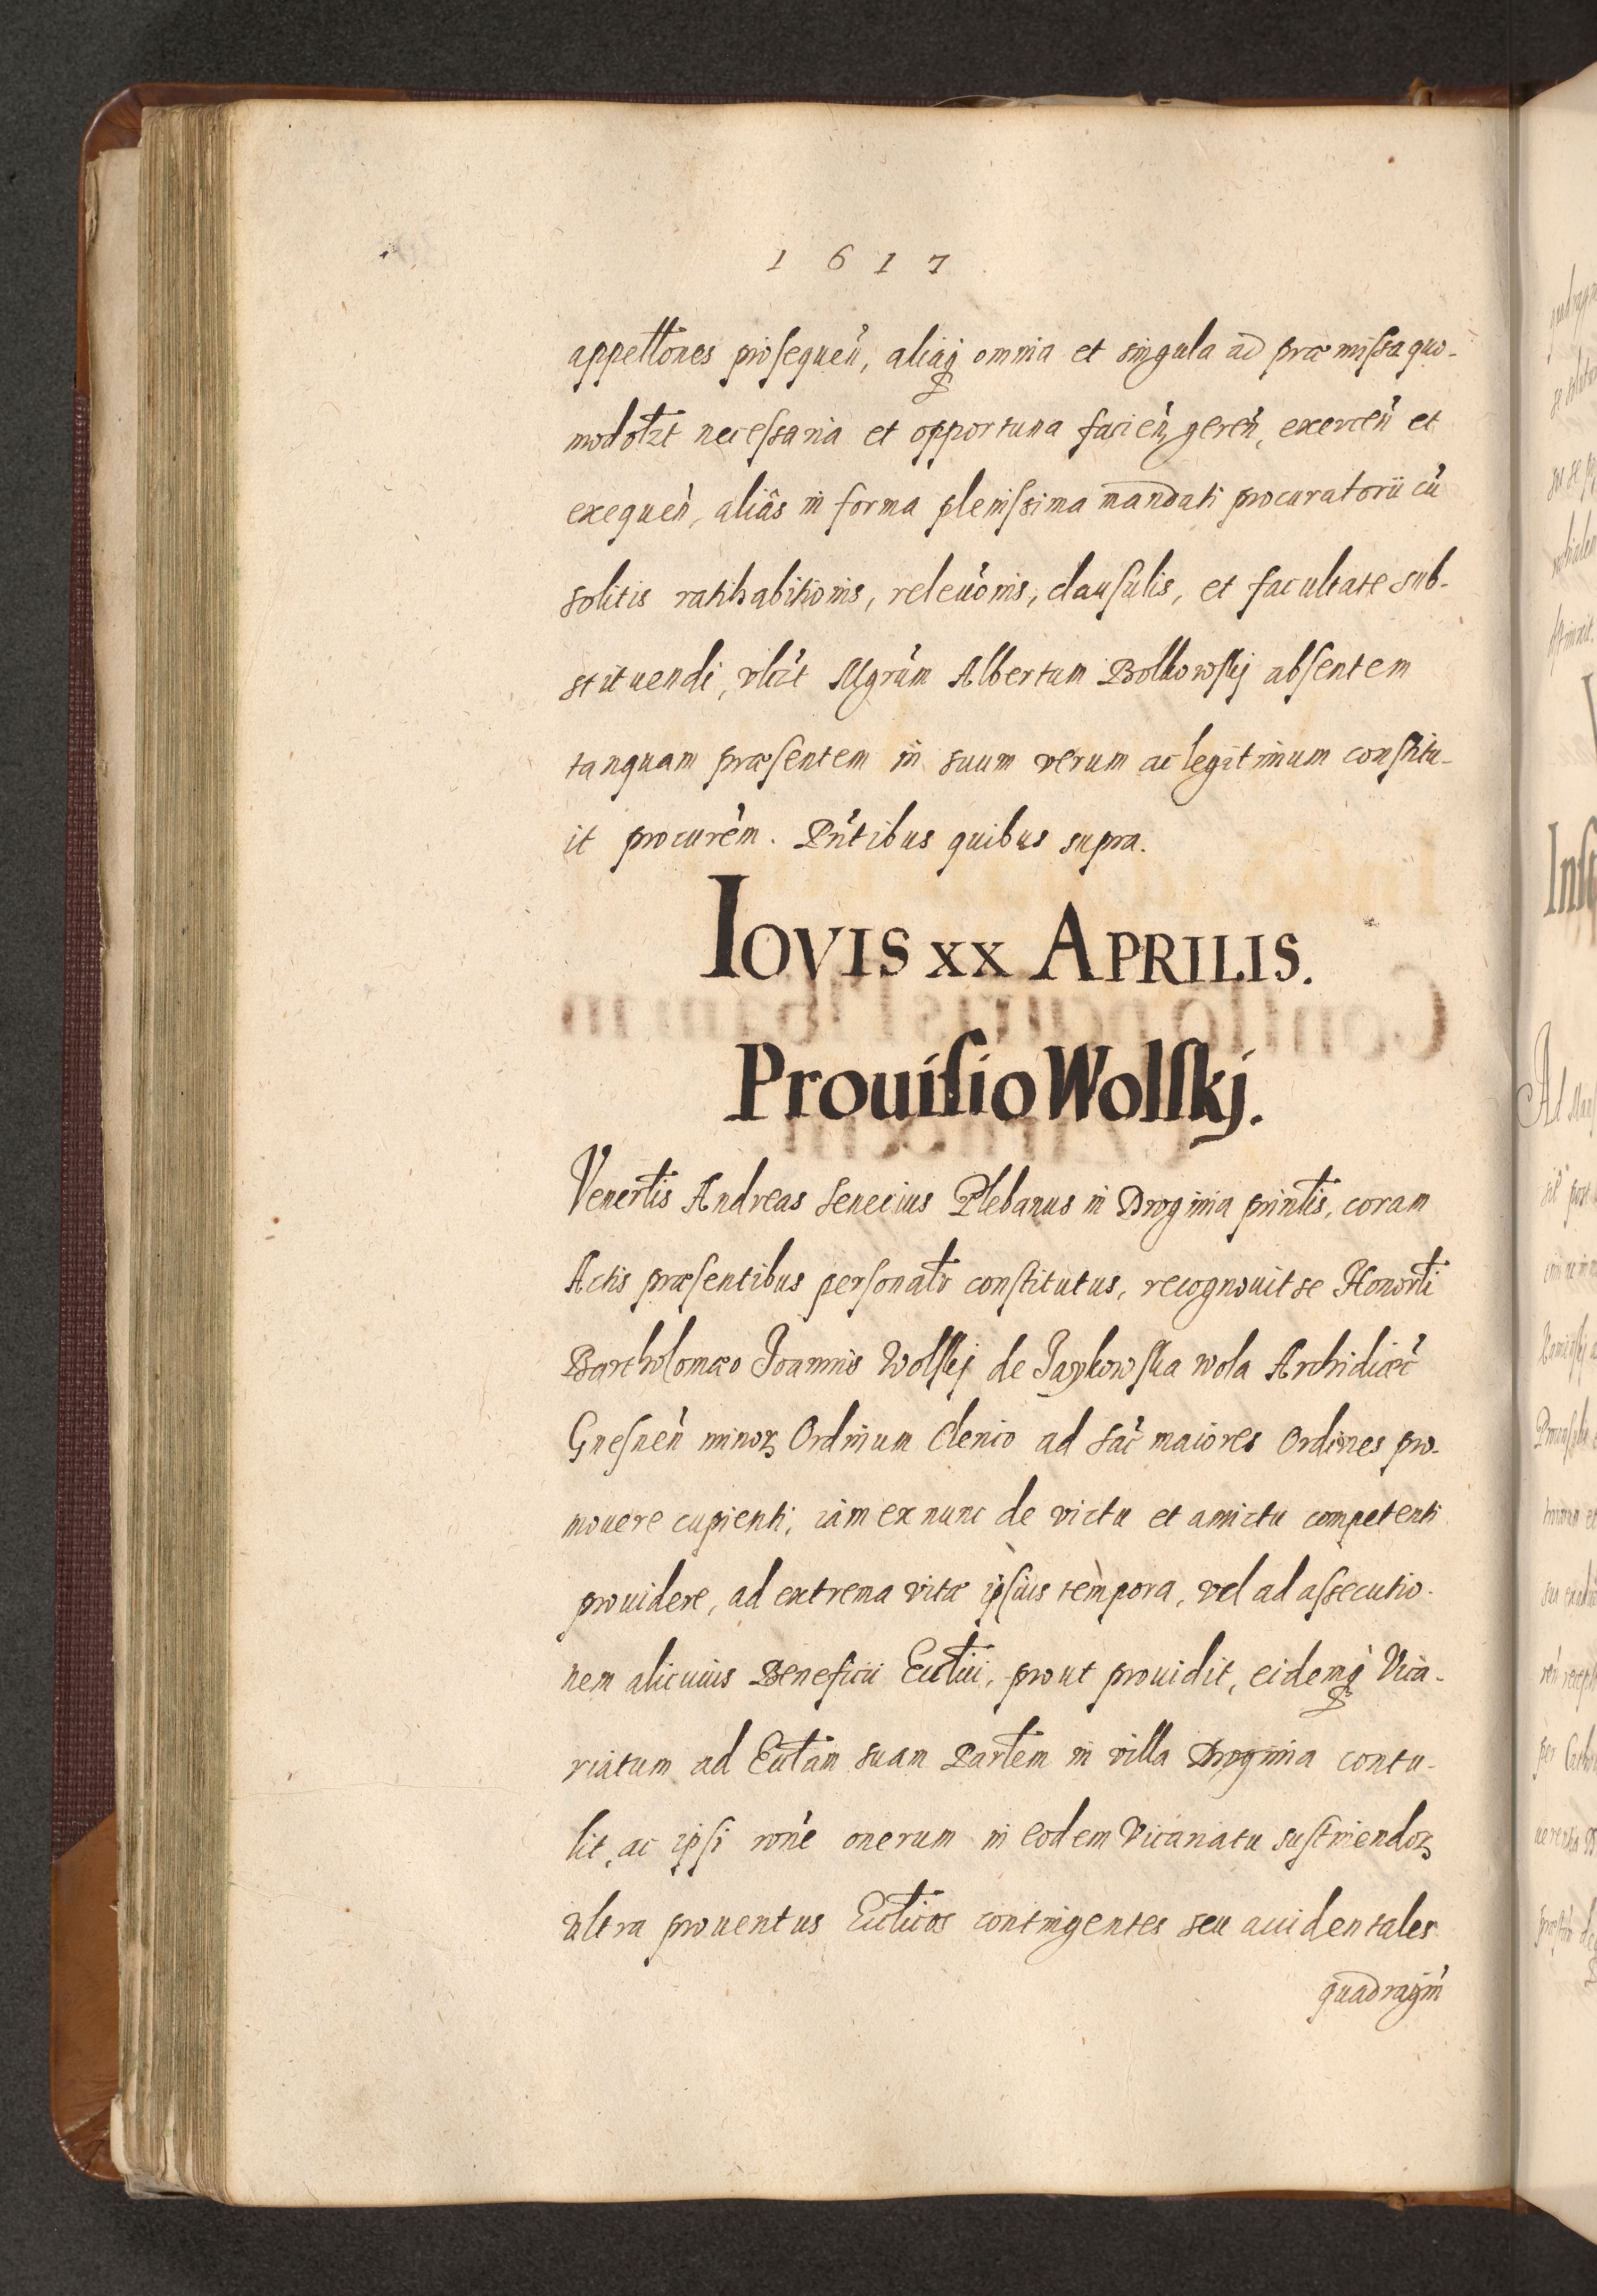 1617
appellõnes prosequeñ, aliaq̃ omnia et singula ad præmissa quo-
modolzt necessaria et opportuna facieñ, gereñ, exerceñ et
exequeñ, aliâs in forma plenissima mandati procuratorii cũ
solitis ratihabitionis, releuõnis, clausulis, et facultate sub-
stituendi, vlizt Mgrũm Albertum Bolkowskj absentem
tanquam præsentem in suum verum ac legitimum constitu-
it procurẽm. Pñtibus quibus supra.
IOVIS XX APRILIS.
Prouisio Wolskj.
Venerlis Andreas Senecius Plebanus in Droginia prinlis, coram
Actis præsentibus personalr constitutus, recognouit se Honorli
Bartholomæo Ioannis Wolskj de Jaykowska wola Archidiæc̃
Gnesneñ minoꝝ Ordinum Clerico ad sac̃ maiores Ordines pro-
mouere cupienti, iam ex nunc de victu et amictu competenti
prouidere, ad extrema vitæ ipsius tempora, vel ad assecutio-
nem alicuius Beneficii Ecclīci, prout prouidit, eidemq̃ Vica-
riatum ad Ecclām suam Parlem in villa Droginia contu-
lit, ac ipsi rõne onerum in eodem Vicariatu sustinendoꝝ
vltra prouentus Ecclīcos contingentes seu accidentales
quadragiñ